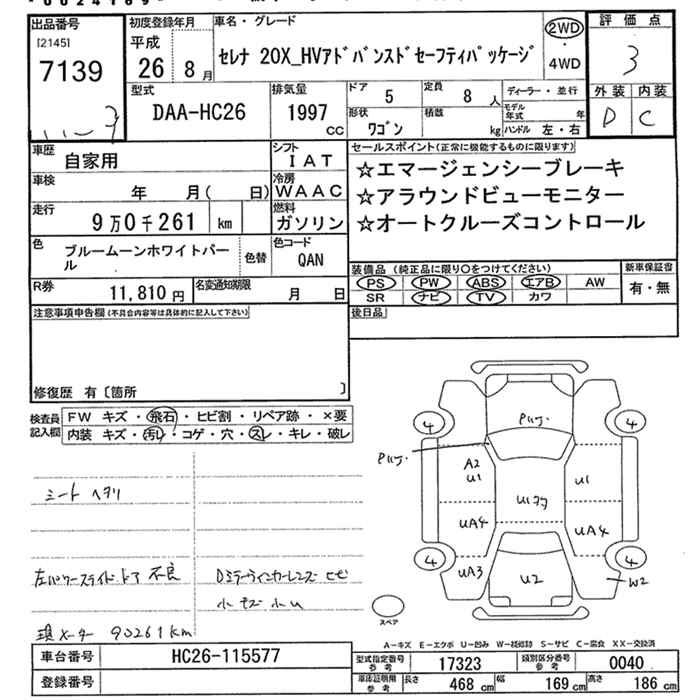 出品番号 初度登録年月 車名・グレード 評価点
[2145] 平成
7139 26 8月 セレナ 20X_HVアドバンスドセーフティパッケージ 2WD・4WD 3
型式 排気量 ドア 定員 ディーラー・並行 外装 内装
DAA-HC26 1997cc 5 8人 モデル年式 年 D C
形状 積載
ワゴン kg ハンドル 左・右
車歴 自家用 シフト IAT セールスポイント(正常に機能するものに限ります)
車検 年 月( 日) 冷房 WAAC ☆エマージェンシーブレーキ
走行 9万0千261 km 燃料 ガソリン ☆アラウンドビューモニター
☆オートクルーズコントロール
色 ブルームーンホワイトパール 色替 色コード QAN
装備品(純正品に限り○をつけてください) 新車保証書
PS PW ABS エアB AW 有・無
SR ナビ TV カワ
R券 11,810円 名変通知期限 月 日
注意事項申告欄(不具合内容等は具体的に記入して下さい) 後日品
修復歴 有〔箇所 〕
検査員記入欄 FW キズ・飛石・ヒビ割・リペア跡・×要
内装 キズ・汚レ・コゲ・穴・スレ・キレ・破レ
4 4
A2
U1 U1
UA4 UA4
4 4
UA3 U2 W2
シート ヘタリ
左パワースライドドア 不良 Dミラーウィンカーレンズ ヒビ
小キズ 小U
現メーター 90261km
スペア
A-キズ E-エクボ U-凹み W-補修跡 S-サビ C-腐食 XX-交換済
車台番号 HC26-115577 型式指定番号 参考 17323 類別区分番号 参考 0040
登録番号 車庫証明用 参考 長さ 468cm 幅 169cm 高さ 186cm